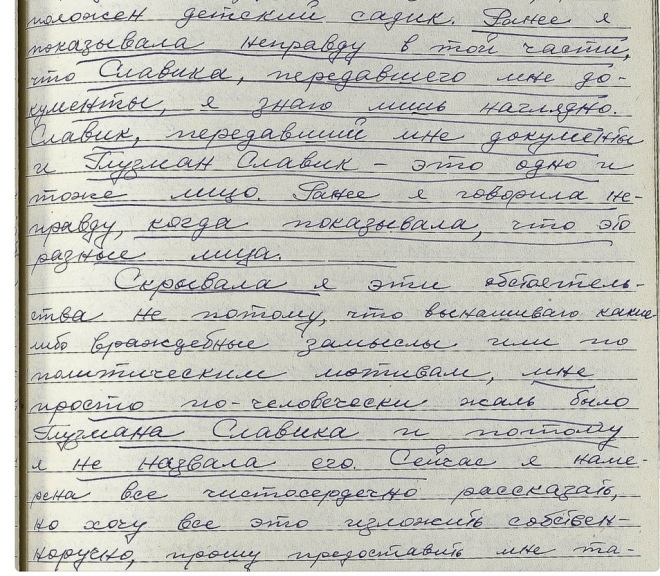 положен детский садик. Ранее я
показывала неправду в той части,
что Славика, передавшего мне до-
кументы, я знаю лишь наглядно.
Славик, передавший мне документы
и Глузман Славик – это одно и
тоже лицо. Ранее я говорила не-
правду, когда показывала, что это
разные лица.
Скрывала я эти обстоятель-
ства не потому, что вынашиваю какие
либо враждебные замыслы или по
политическим мотивам, мне
просто по-человечески жаль было
Глузмана Славика и потому
я не назвала его. Сейчас я наме-
рена все чистосердечно рассказать,
но хочу все это изложить собствен-
норучно, прошу предоставить мне та-